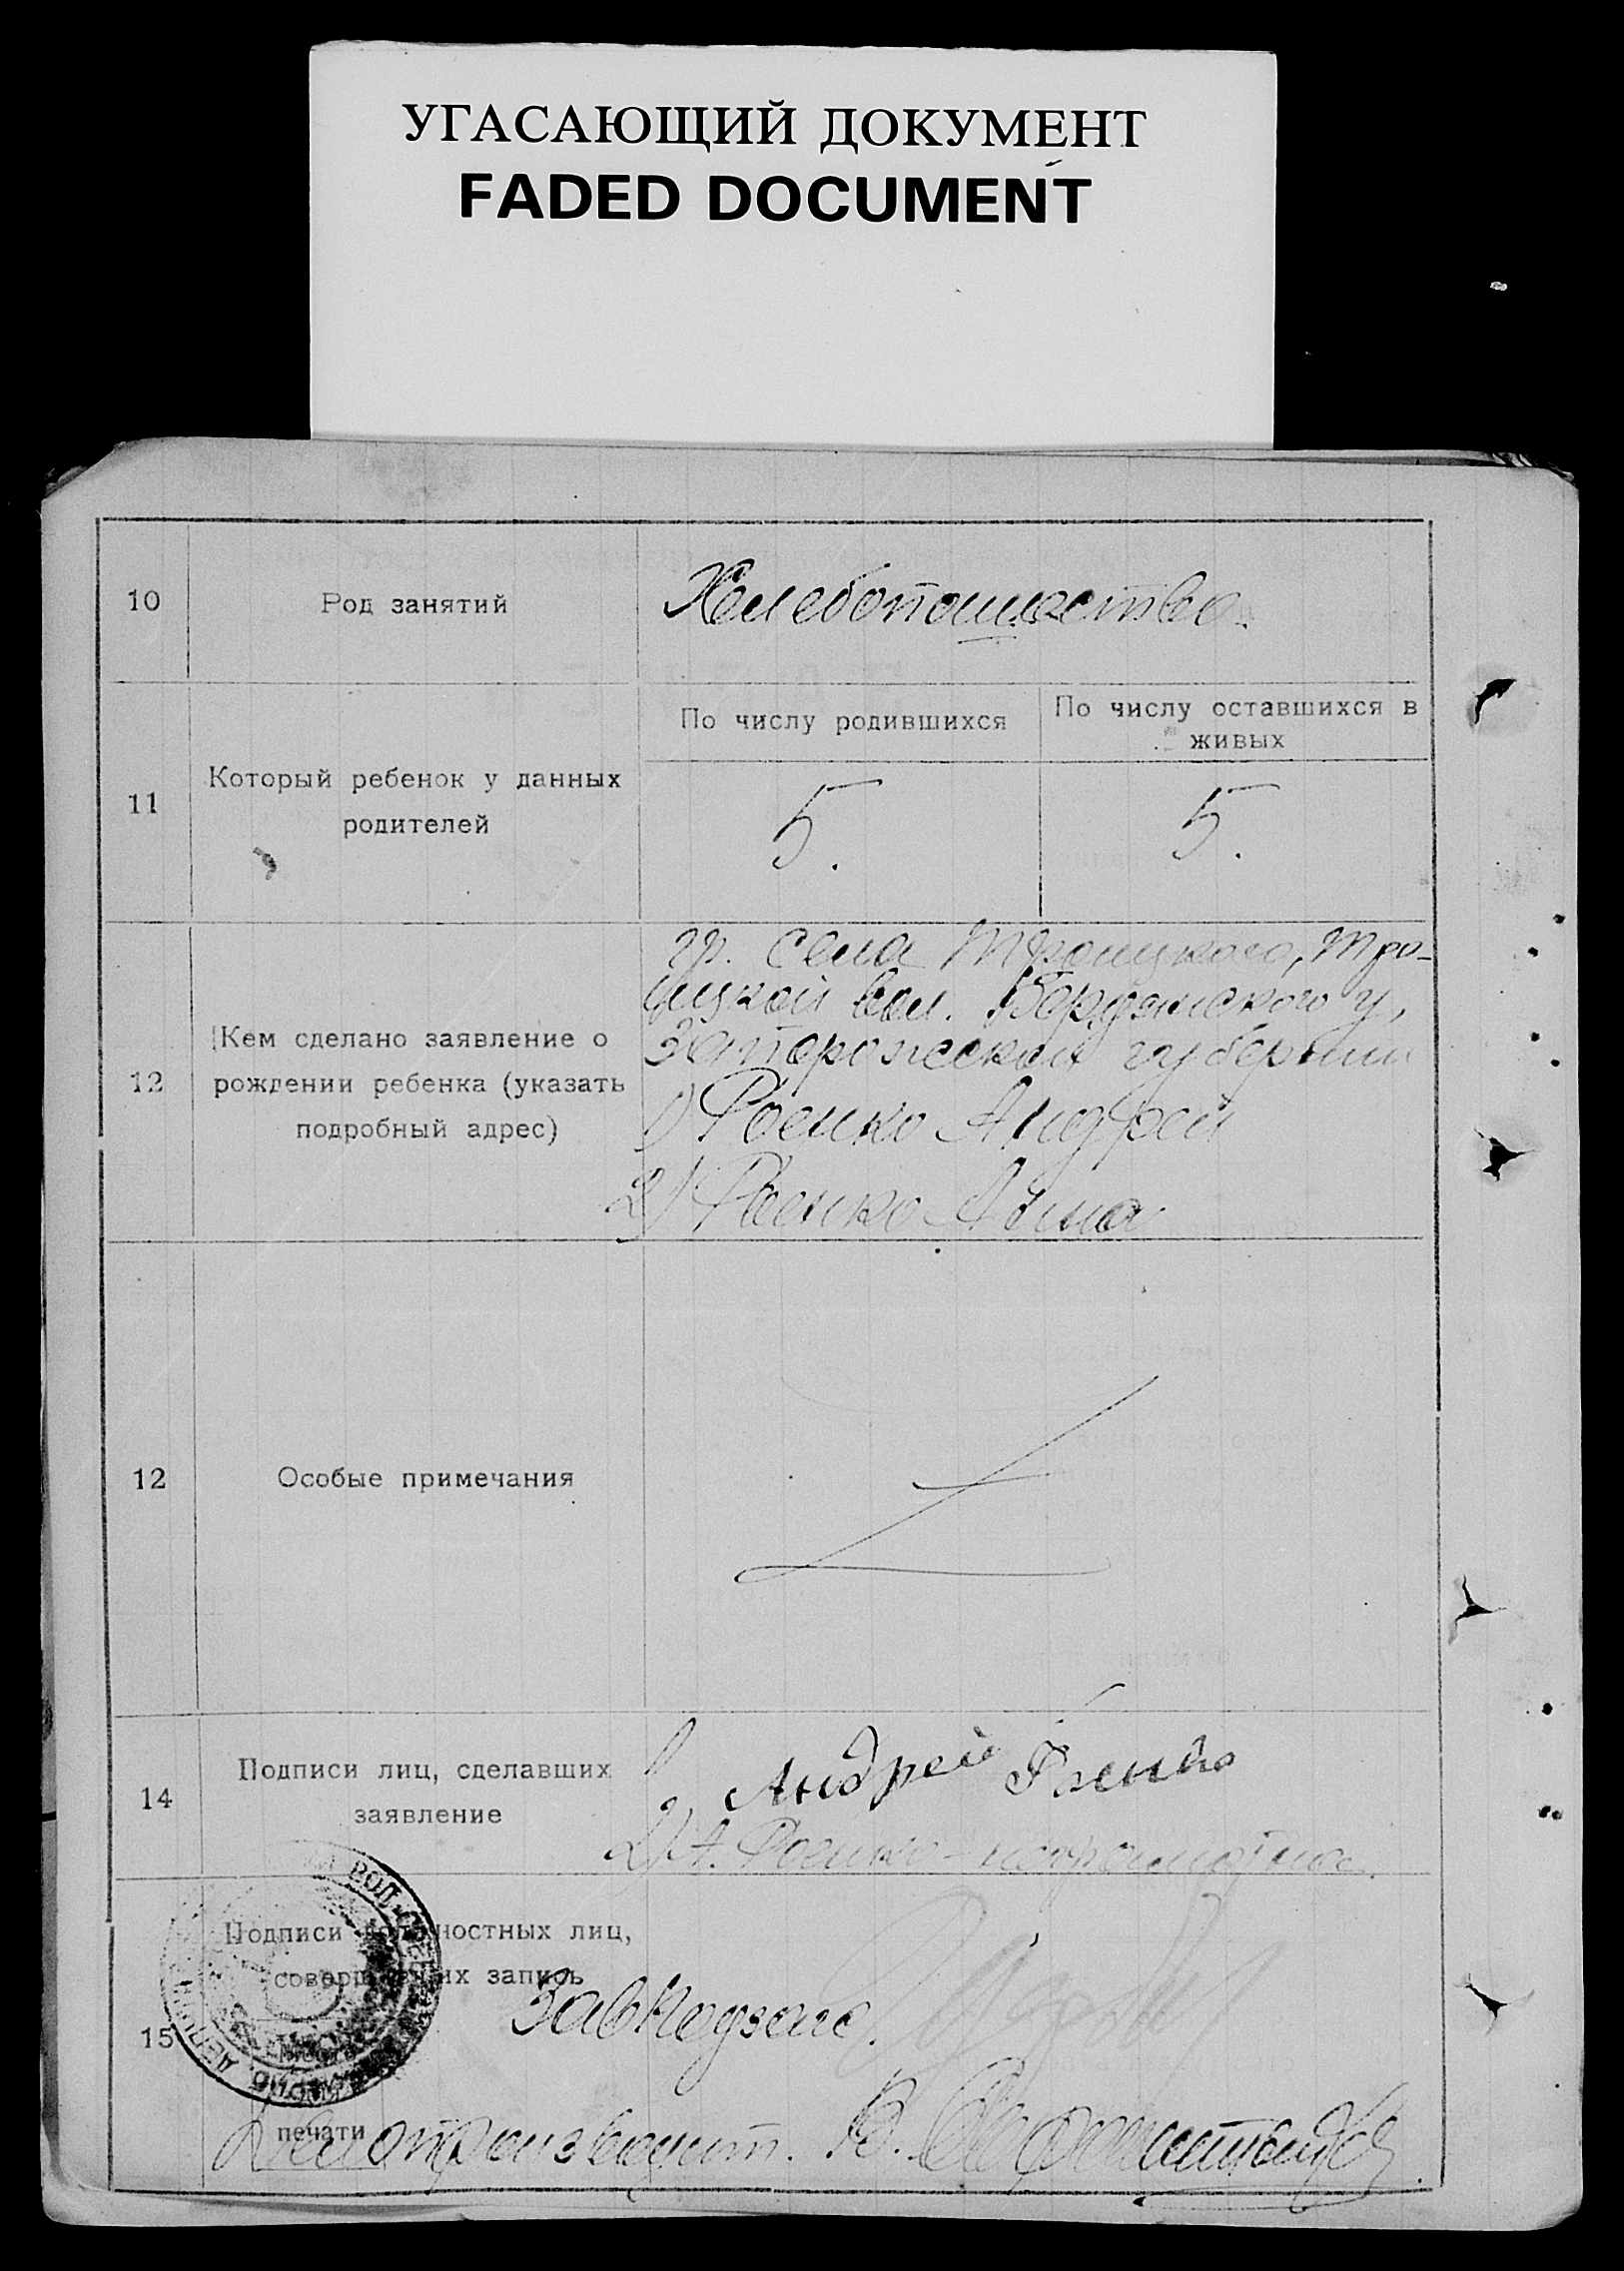 УГАСАЮЩИЙ ДОКУМЕНТ
FADED DOCUMENT
10
Род занятий
Хлебопашество.
11
Который ребенок у данных
родителей
По числу родившихся
По числу оставшихся в
живых
5.
5.
12
Кем сделано заявление о
рождении ребенка (указать
подробный адрес)
гр. села Троицкого, Тро-
ицкой вол. Бердянского у,
Запорожской губернии
1) Роенко Андрей
2) Роенко Анна
12
Особые примечания
14
Подписи лиц, сделавших
заявление
1) Андрей Роенко
2) А. Роенко - неграмотная.
15
Подписи должностных лиц,
совершивших запись
Завподзагс.
Место
печати
Делопроизводит. В.